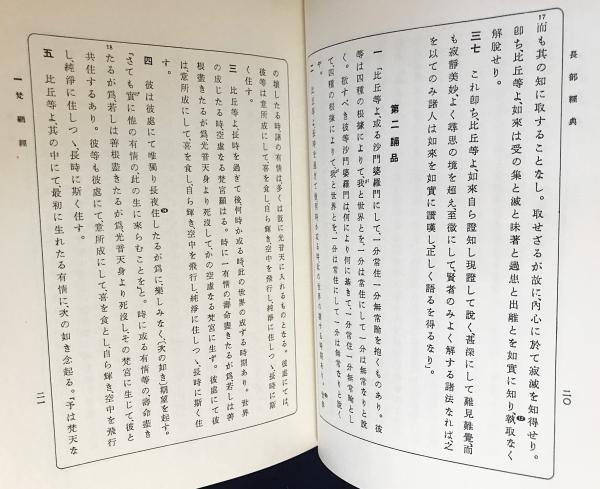 長部經典
二〇
17而も其の知に取することなし。取せざるが故に、內心に於て寂滅を知得せり。
卽ち、比丘等よ、如來は受の集と滅と味著と過患と出離とを如實に知り、執取なく
解脫せり。
三七 これ卽ち、比丘等よ、如來自ら證知し現證して說く、甚深にして難見難覺、而
も寂靜美妙、よく尋思の境を超え、至微にして、賢者のみよく解する諸法なれば、之
を以てのみ諸人は如來を如實に讚嘆し、正しく語るを得るなり」。
第二誦品
一 「比丘等よ、或る沙門婆羅門にして、一分常住一分無常論を抱くものあり。彼
等は四種の根據によりて、我と世界とを、一分は常住にして一分は無常なりと說
く。敬すべき彼等沙門婆羅門は、何により何に基きて、一分常住一分無常論とし
は四種の根據によりて、我と世界とを、一分は常住にして、一分は無常なりと說く
や。
の壞したる時、諸の有情は、多くは旣に光音天に入れるものとなる。彼處にては、
彼等は意所成にして、喜を食し、自ら輝き、空中を飛行し、純淨に住しつゝ、長時に斯
く住す。
三 比丘等よ、長時を過ぎて後、何時か或る時、此の世界の成ずる時期あり。世界
の成じたる時、空虛なる梵宮顯はる。時に一有情の壽命盡きたるが爲、若しは善
根盡きたるが爲、光音天身より死沒して、かの空虛なる梵宮に生ず。彼處にて彼
は意所成にして、喜を食し、自ら輝き、空中を飛行し、純淨に住しつゝ、長時に斯く住
す。
四 彼は彼處にて唯獨り長夜住したるが爲に、樂しみなく、(次の如き)期望を起す。
『さても、實に他の有情の此の生に來らむことを』と。時に或る有情等の壽命盡き
18たるが爲、若しは善根盡きたるが爲、光音天身より死沒し、その梵宮に生じて、彼と
共住するあり。彼等も彼處にて、意所成にして、喜を食とし、自ら輝き、空中を飛行
し、純淨に住しつゝ、長時に斯く住す。
五 比丘等よ、其の中にて、最初に生れたる有情に、次の如き念起る。『予は梵天な
一 梵網經
二一